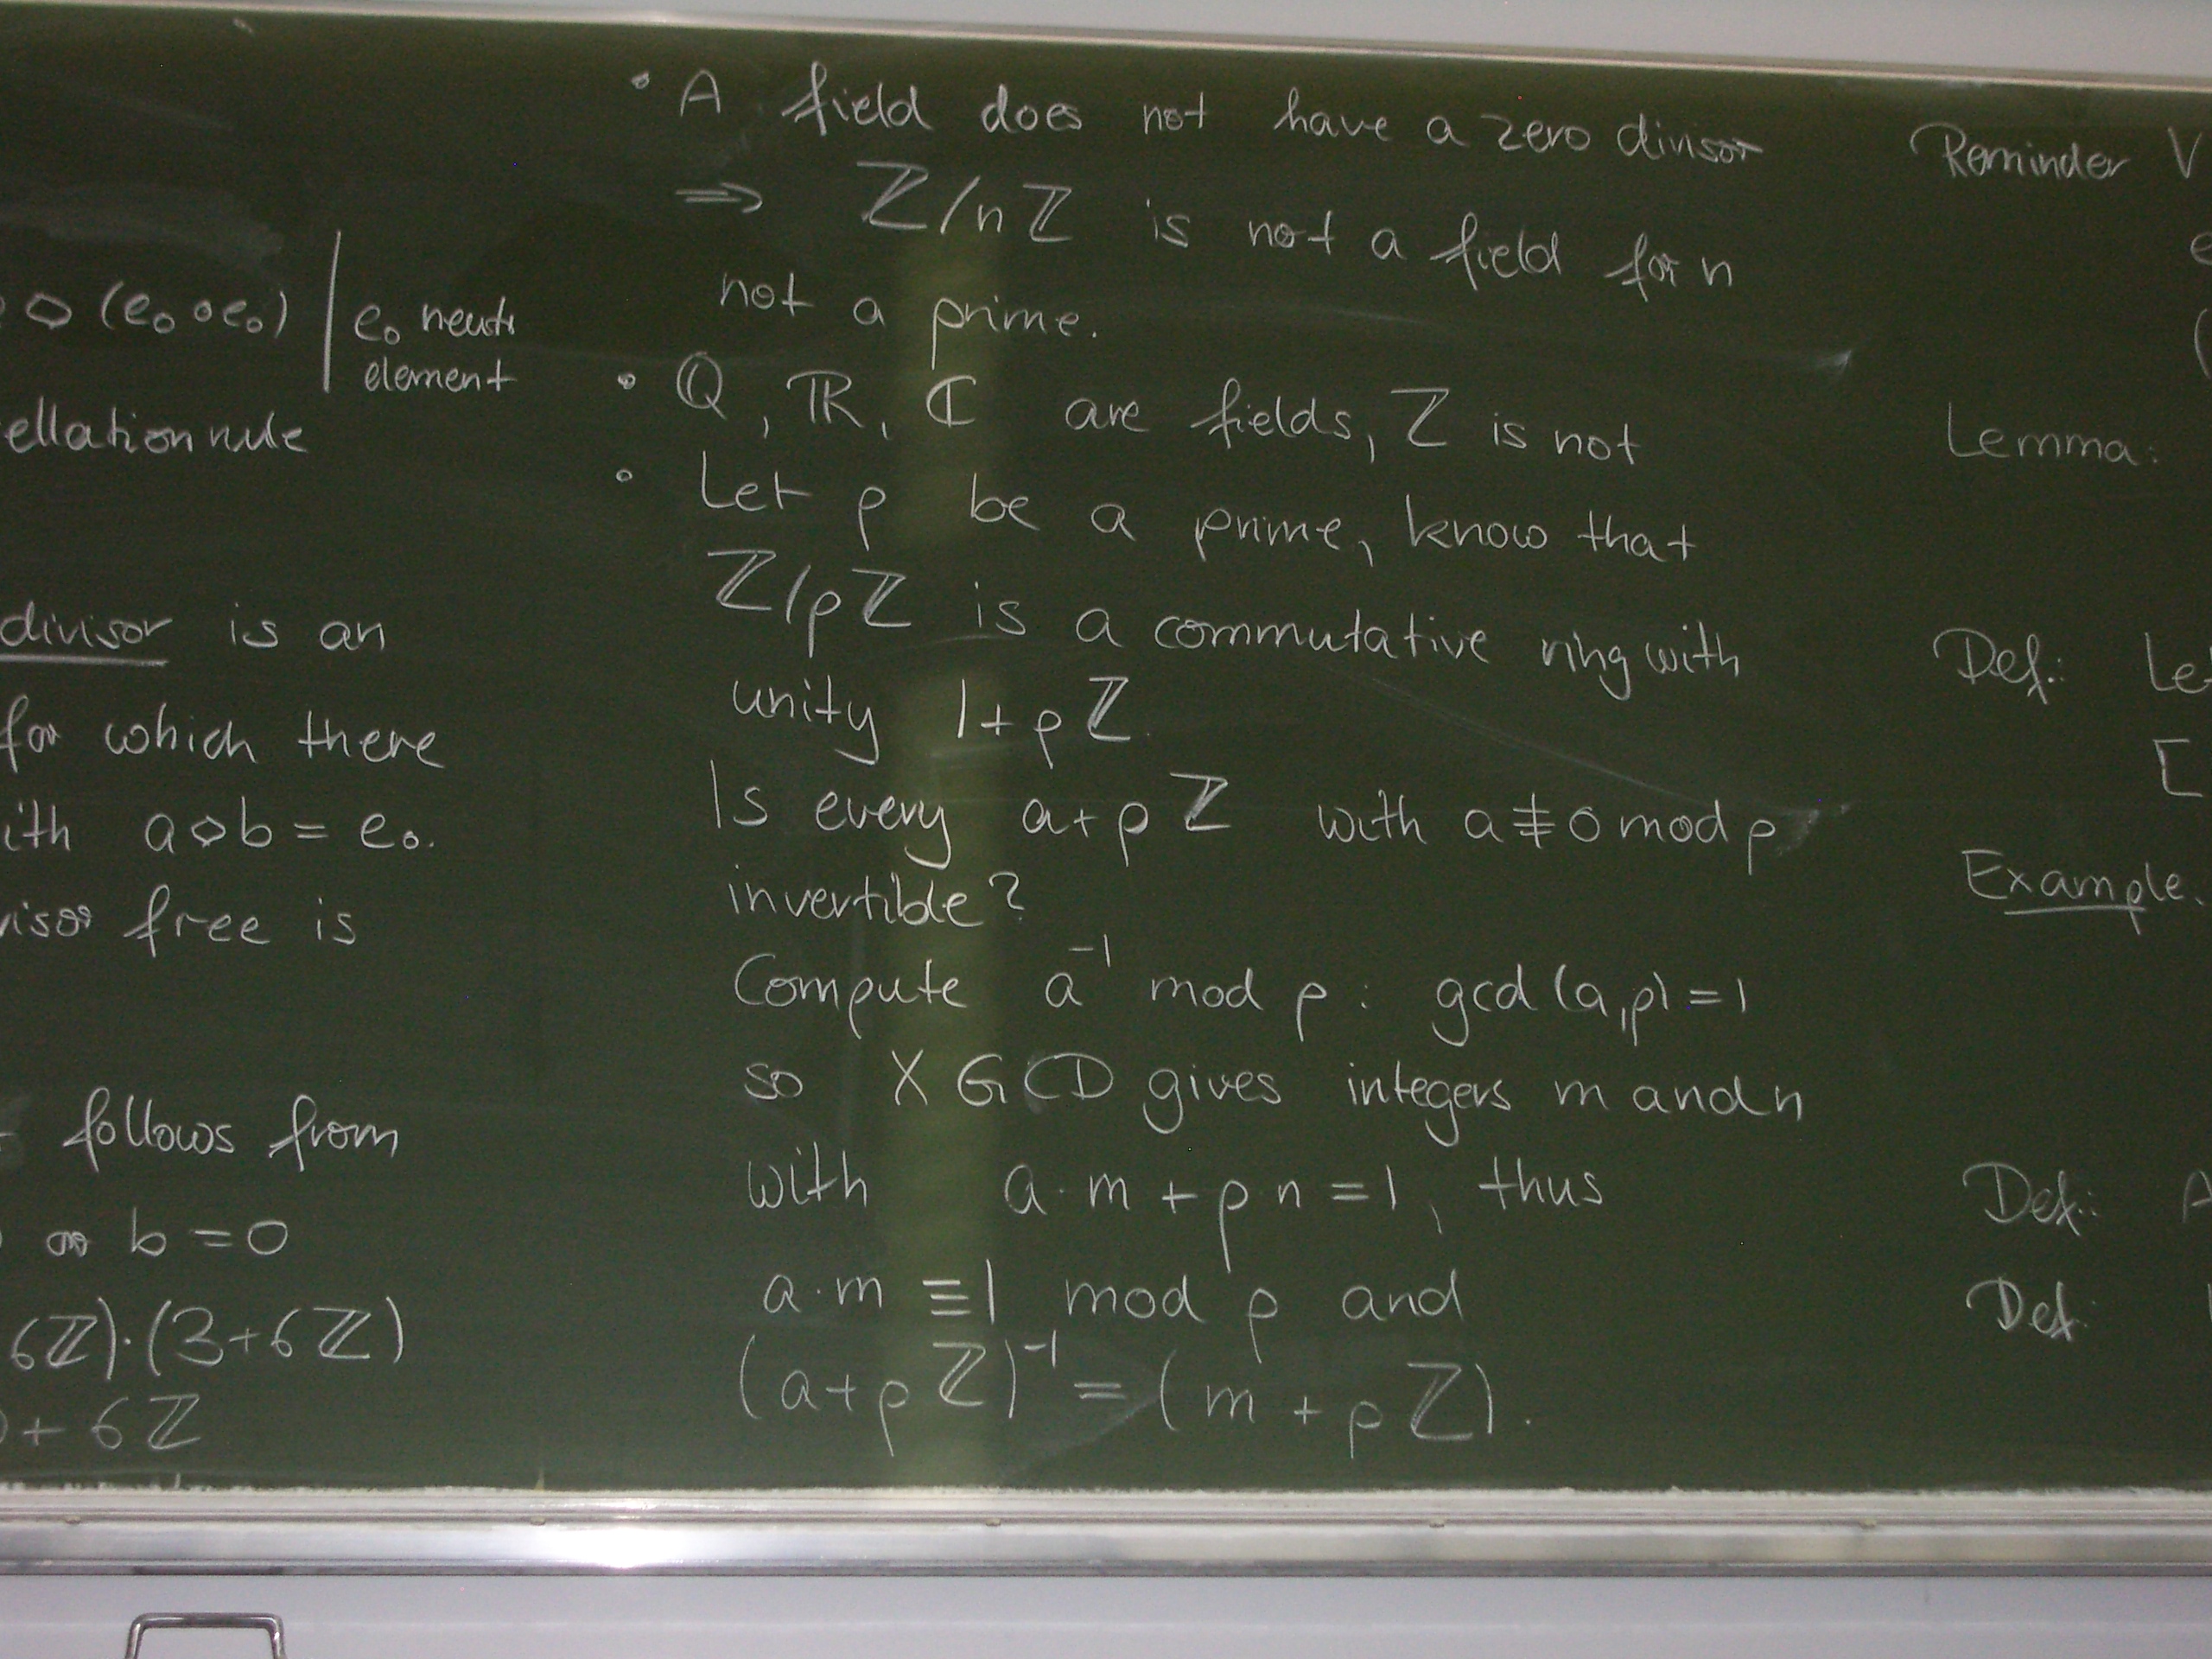 ◇ (e₀ ∘ e₀) | e₀ neutr
element
ellation rule
divisor is an
for which there
ith a◇b = e₀.
visor free is
follows from
or b = 0
6ℤ)·(3+6ℤ)
+ 6ℤ
• A field does not have a zero divisor
⇒ ℤ/nℤ is not a field for n
not a prime.
• ℚ, ℝ, ℂ are fields, ℤ is not
• Let p be a prime, know that
ℤ/pℤ is a commutative ring with
unity 1+pℤ.
Is every a+pℤ with a≢0 mod p
invertible?
Compute a⁻¹ mod p: gcd(a,p)=1
so XGCD gives integers m and n
with a·m + p·n = 1, thus
a·m ≡ 1 mod p and
(a+pℤ)⁻¹ = (m+pℤ).
Reminder V
e
(
Lemma:
Def.: Let
[
Example.
Def.: A
Def: